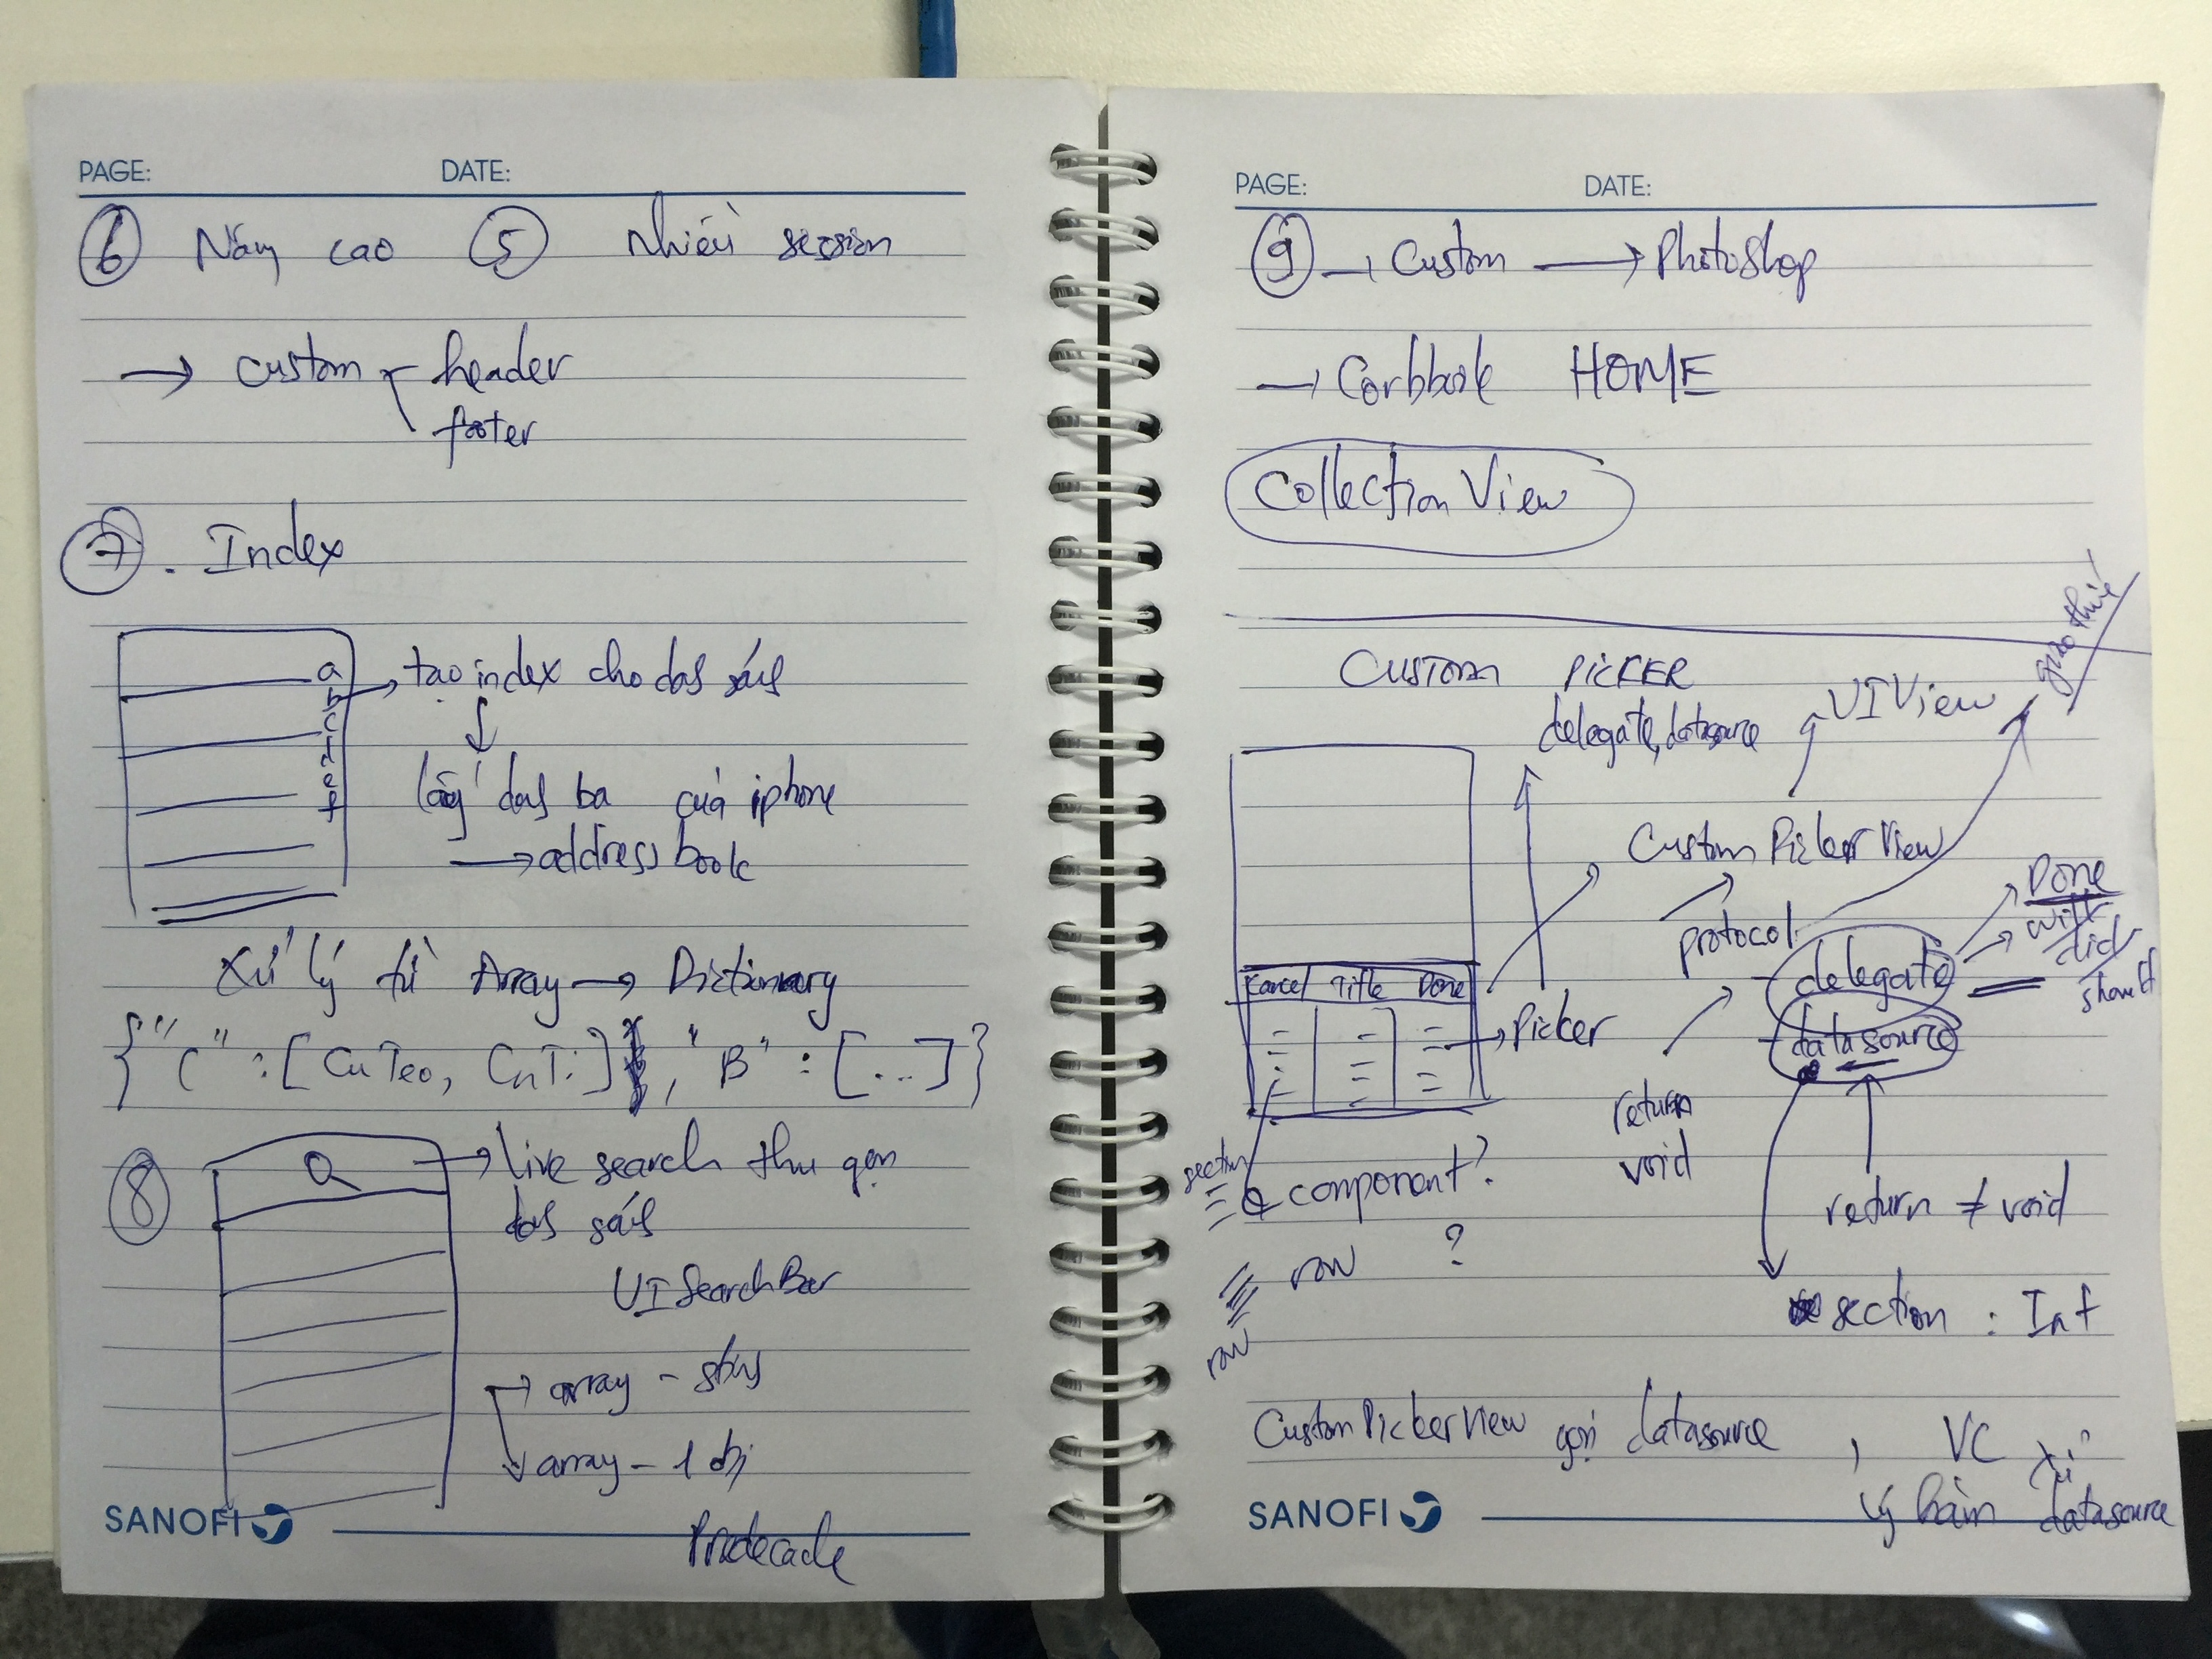 PAGE: DATE:
⑥ Nâng cao ⑤ nhiều session
→ custom header
footer
⑦. Index
a
b
c
d
e
f
tạo index cho das sách
lấy das bạ của iphone
→ address book
Xử lý từ Array → Dictionary
{"C" : [CuTeo, CuTi], "B" : [...]}
⑧
live search thu gọn
das sách
UISearchBar
→ array -
→ array - 1 obj
SANOFI
PAGE: DATE:
⑨ → Custom → Photoshop
→ HOME
Collection View
CUSTOM PICKER
delegate, datasource
UIView
giao thức
Custom PickerView
protocol
delegate
datasource
Done
will
did
should
Cancel Title Done
→ Picker
return
void
section
component?
row ?
row
return ≠ void
section : Int
CustomPickerView gọi datasource , VC xử
lý hàm datasource
SANOFI